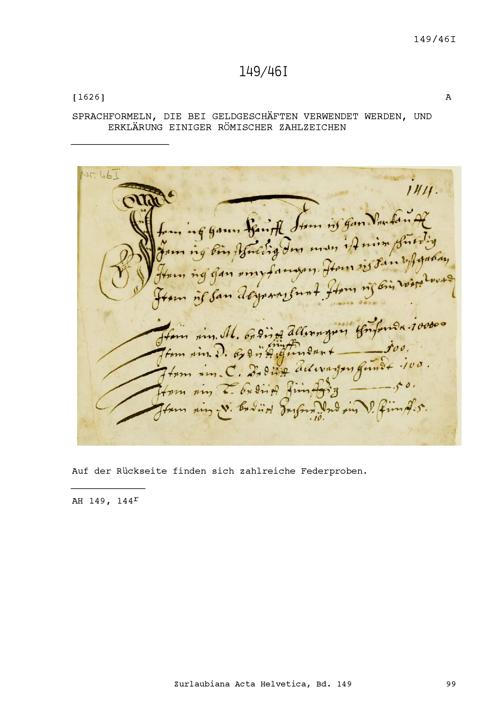 149/46I
149/46I
[1626] A
SPRACHFORMELN, DIE BEI GELDGESCHÄFTEN VERWENDET WERDEN, UND
ERKLÄRUNG EINIGER RÖMISCHER ZAHLZEICHEN
Nr. 46I
144.
Item ich hann kaufft Item ich han verkaufft
Item ich bin schuldig Im man ist mir schuldig
Item ich han empfangen. Item ich han vßgeben
Item ich han abgerechnet Item ich bin
Item ein M. bedüt allwegen thusende
Item ein D. bedüt fünff hundert 500.
Item ein C. bedüt allwegen hundt 100.
Item ein L. bedüt fünffzig 50.
Item ein X. bedüt zechne vnd ein V. fünff. 5.
10.
Auf der Rückseite finden sich zahlreiche Federproben.
AH 149, 144r
Zurlaubiana Acta Helvetica, Bd. 149 99